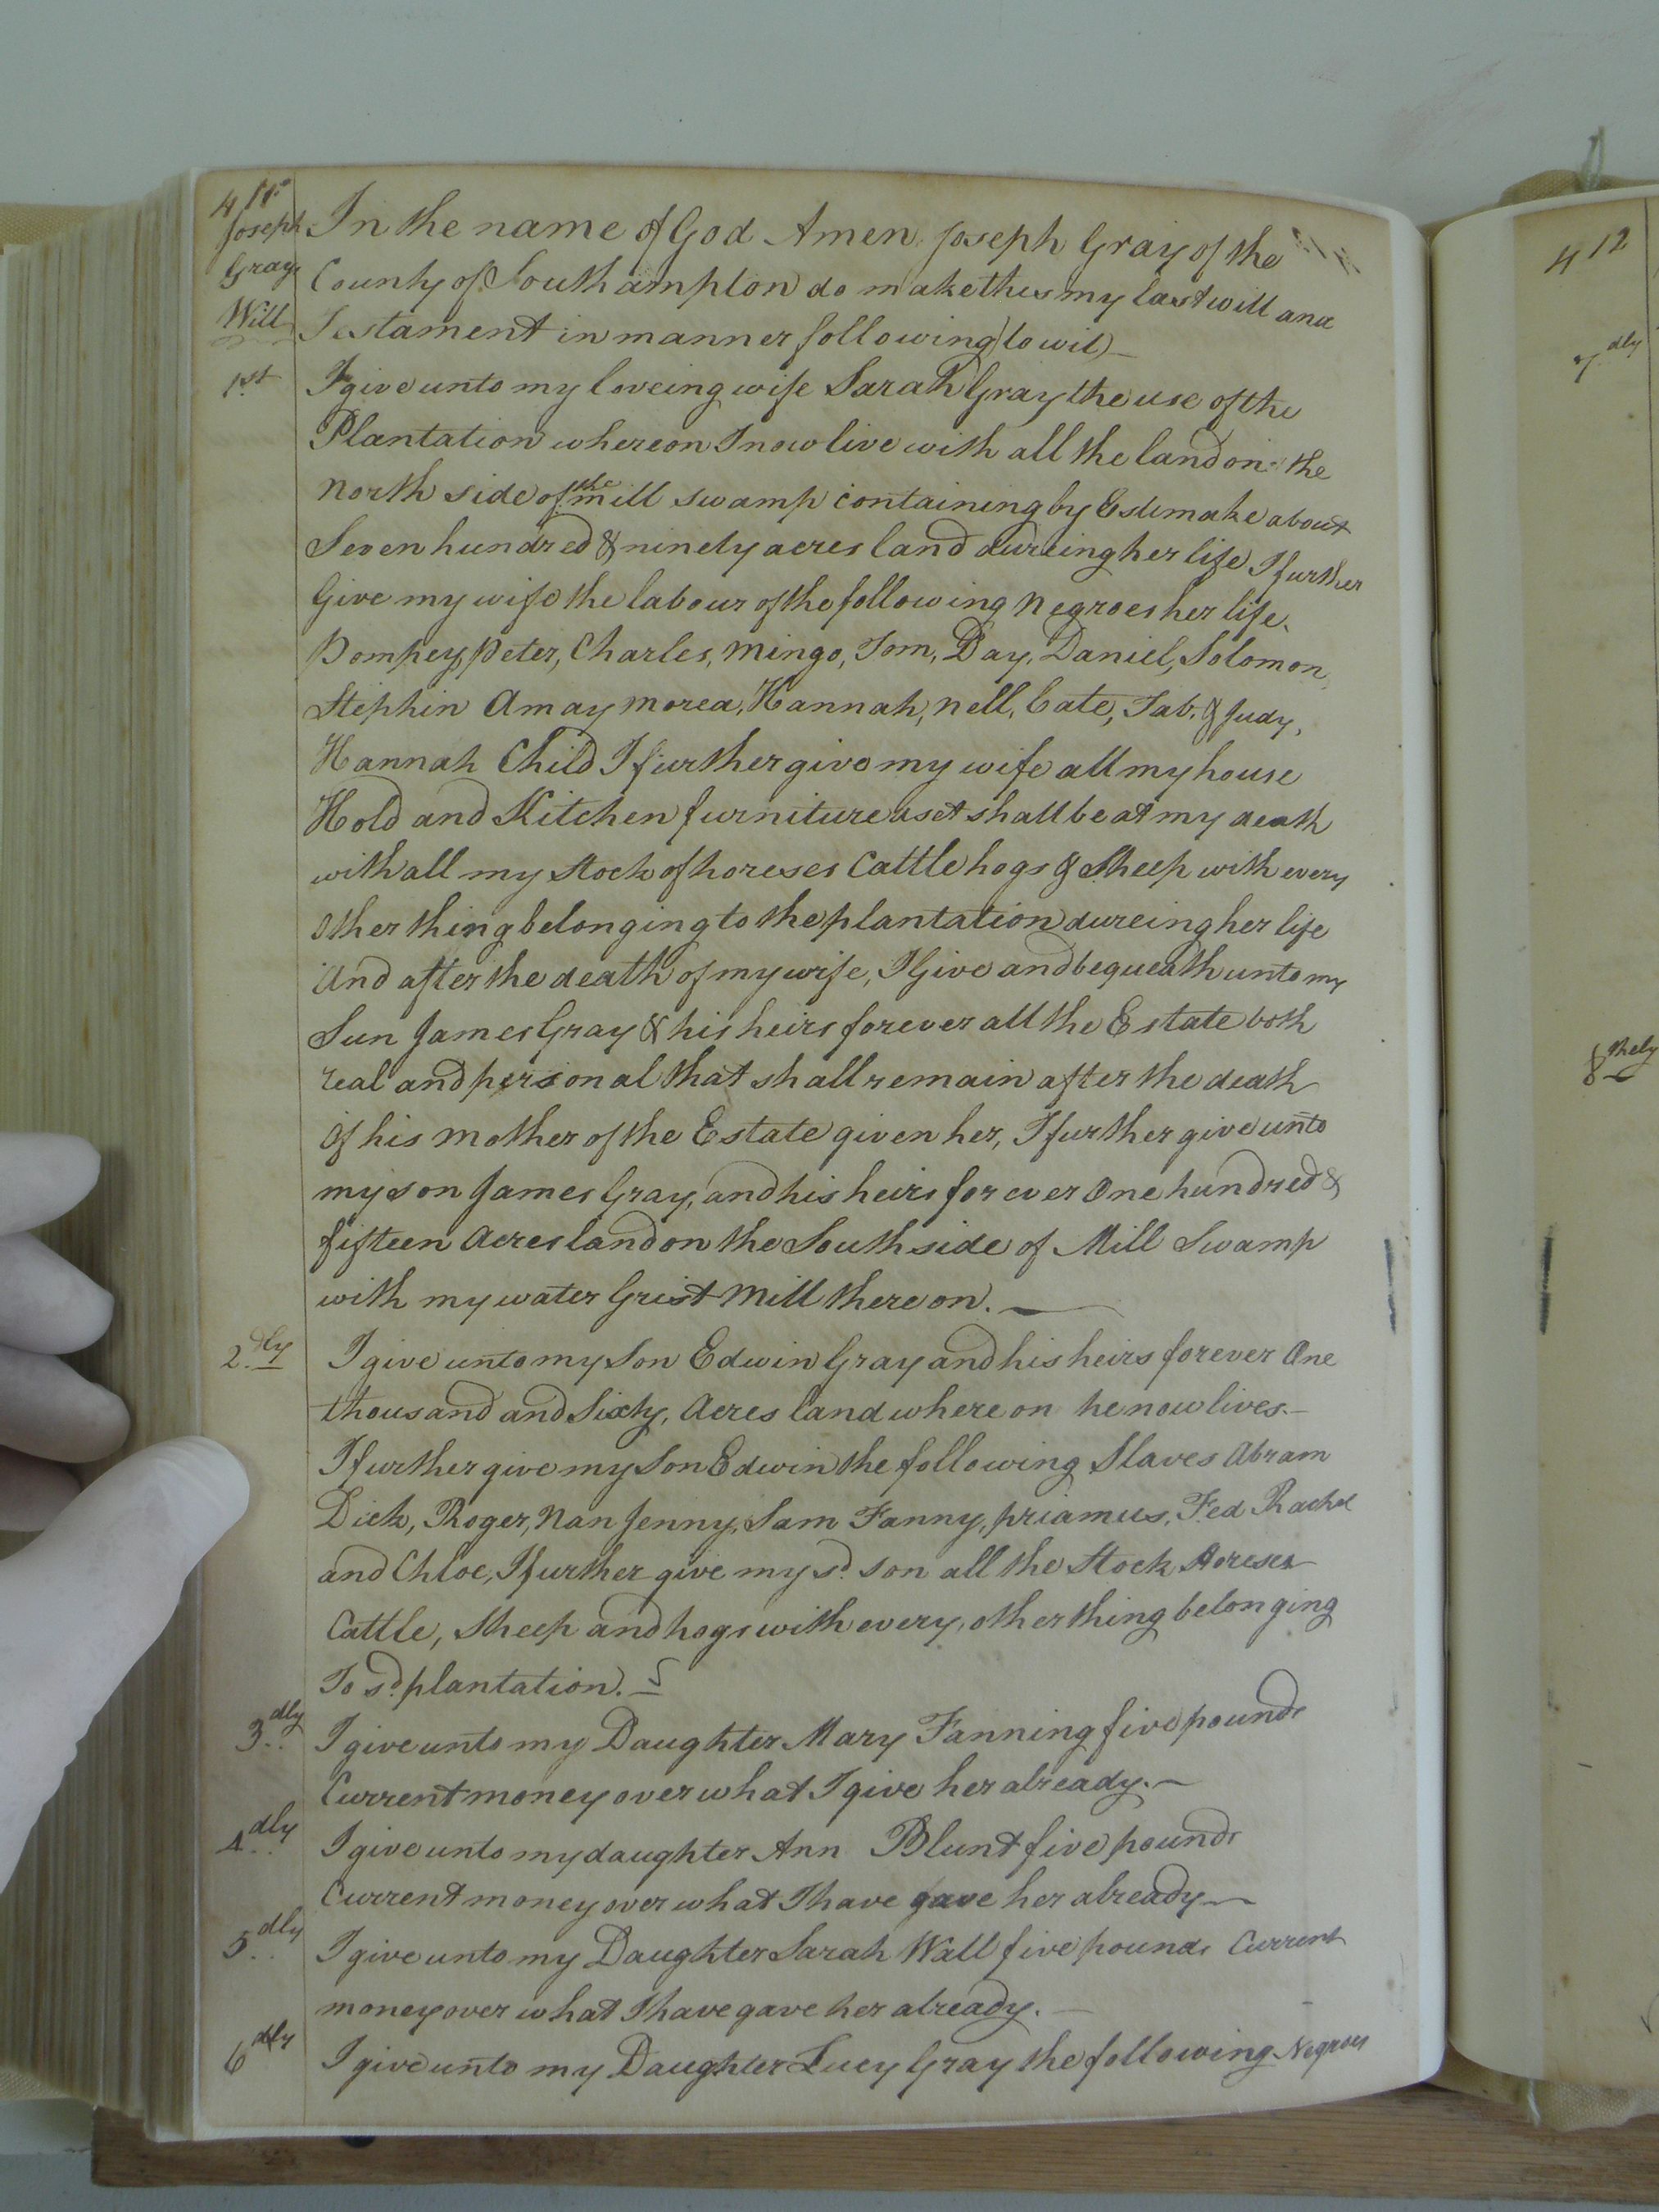 411
Joseph
Grays
Will
In the name of God Amen, Joseph Gray of the
County of Southampton do make this my last will and
Testament in manner following (to wit)
1st
I give unto my loveing wife Sarah Gray the use of the
Plantation whereon I now live with all the land on the
north side of the mill swamp containing by Estimake about
Seven hundred & ninety acres land dureing her life I further
Give my wife the labour of the following negroes her life,
Pompey, Peter, Charles, Mingo, Tom, Day, Daniel, Solomon,
Stephin Amay Morea, Hannah, Nell, Cate, Tab. & Judy,
Hannah Child I further give my wife all my house
Hold and Kitchen furniture as et shall be at my death
with all my Stock of horeses Cattle hogs & Sheep with every
other thing belonging to the plantation dureing her life
And after the death of my wife, I Give and bequeath unto my
Sun James Gray & his heirs forever all the Estate both
real and personal that shall remain after the death
Of his Mother of the Estate given her, I further give unto
my son James Gray, and his heirs for ever One hundred &
fifteen Acres land on the South side of Mill Swamp
with my water Grist Mill there on.
2.dly
I give unto my Son Edwin Gray and his heirs forever One
thousand and Sixty, Acres land where on he now lives.
I further give my Son Edwin the following Slaves Abram
Dick, Roger, Nan Jenny, Sam Fanny, priamus, Fed Rachel
and Chloe, I further give my sd. son all the Stock Horeses
Cattle, Sheep and hogs with every, other thing belonging
To sd. plantation.
3.dly
I give unto my Daughter Mary Fanning five pounds
Current money over what I give her already.
4.dly
I give unto my daughter Ann Blunt five pounds
Current money over what I have gave her already
5.dly
I give unto my Daughter Sarah Wall five pounds Current
money over what I have gave her already.
6dly
I give unto my Daughter Lucy Gray the following Negroes
412
7.dly
8thly